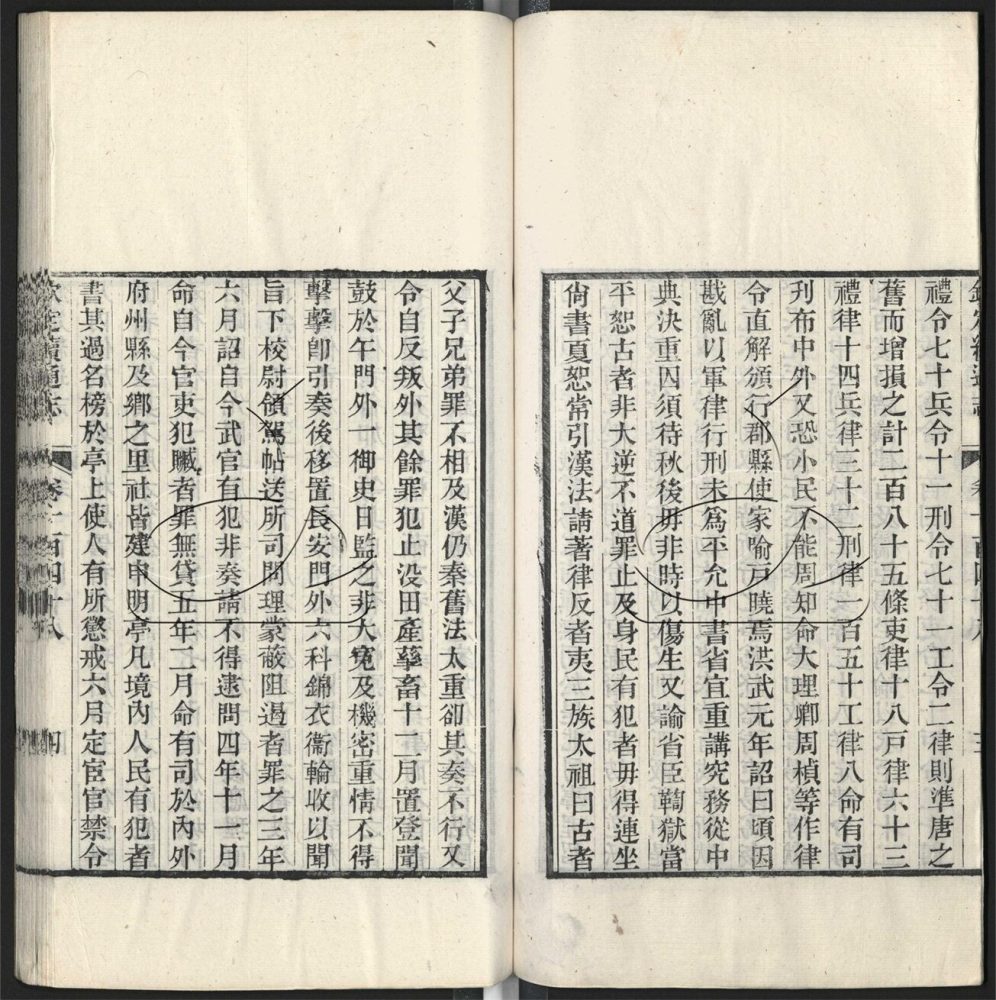 禮令七十兵令十一刑令七十一工令二律則準唐之
舊而增損之計二百八十五條吏律十八戸律六十三
禮律十四兵律三十二刑律一百五十工律八命有司
刋布中外又恐小民不能周知命大理卿周楨等作律
令直解頒行郡縣使家喻戸曉焉洪武元年詔曰頃因
戡亂以軍律行刑未為平允中書省宜重講究務從中
典決重囚須待秋後毋非時以傷生又諭省臣鞫獄當
平恕古者非大逆不道罪止及身民有犯者毋得連坐
尙書夏恕常引漢法請著律反者夷三族太祖曰古者
父子兄弟罪不相及漢仍秦舊法太重卻其奏不行又
令自反叛外其餘罪犯止没田產孳畜十二月置登聞
鼓於午門外一御史日監之非大寃及機密重情不得
擊擊卽引奏後移置長安門外六科錦衣衞輪收以聞
旨下校尉領駕帖送所司問理蒙蔽阻遏者罪之三年
六月詔自今武官有犯非奏請不得逮問四年十一月
命自今官吏犯贓者罪無貸五年二月命有司於內外
府州縣及鄕之里社皆建申明亭凡境內人民有犯者
書其過名榜於亭上使人有所懲戒六月定宦官禁令
欽定續通志 卷一百四十八 四